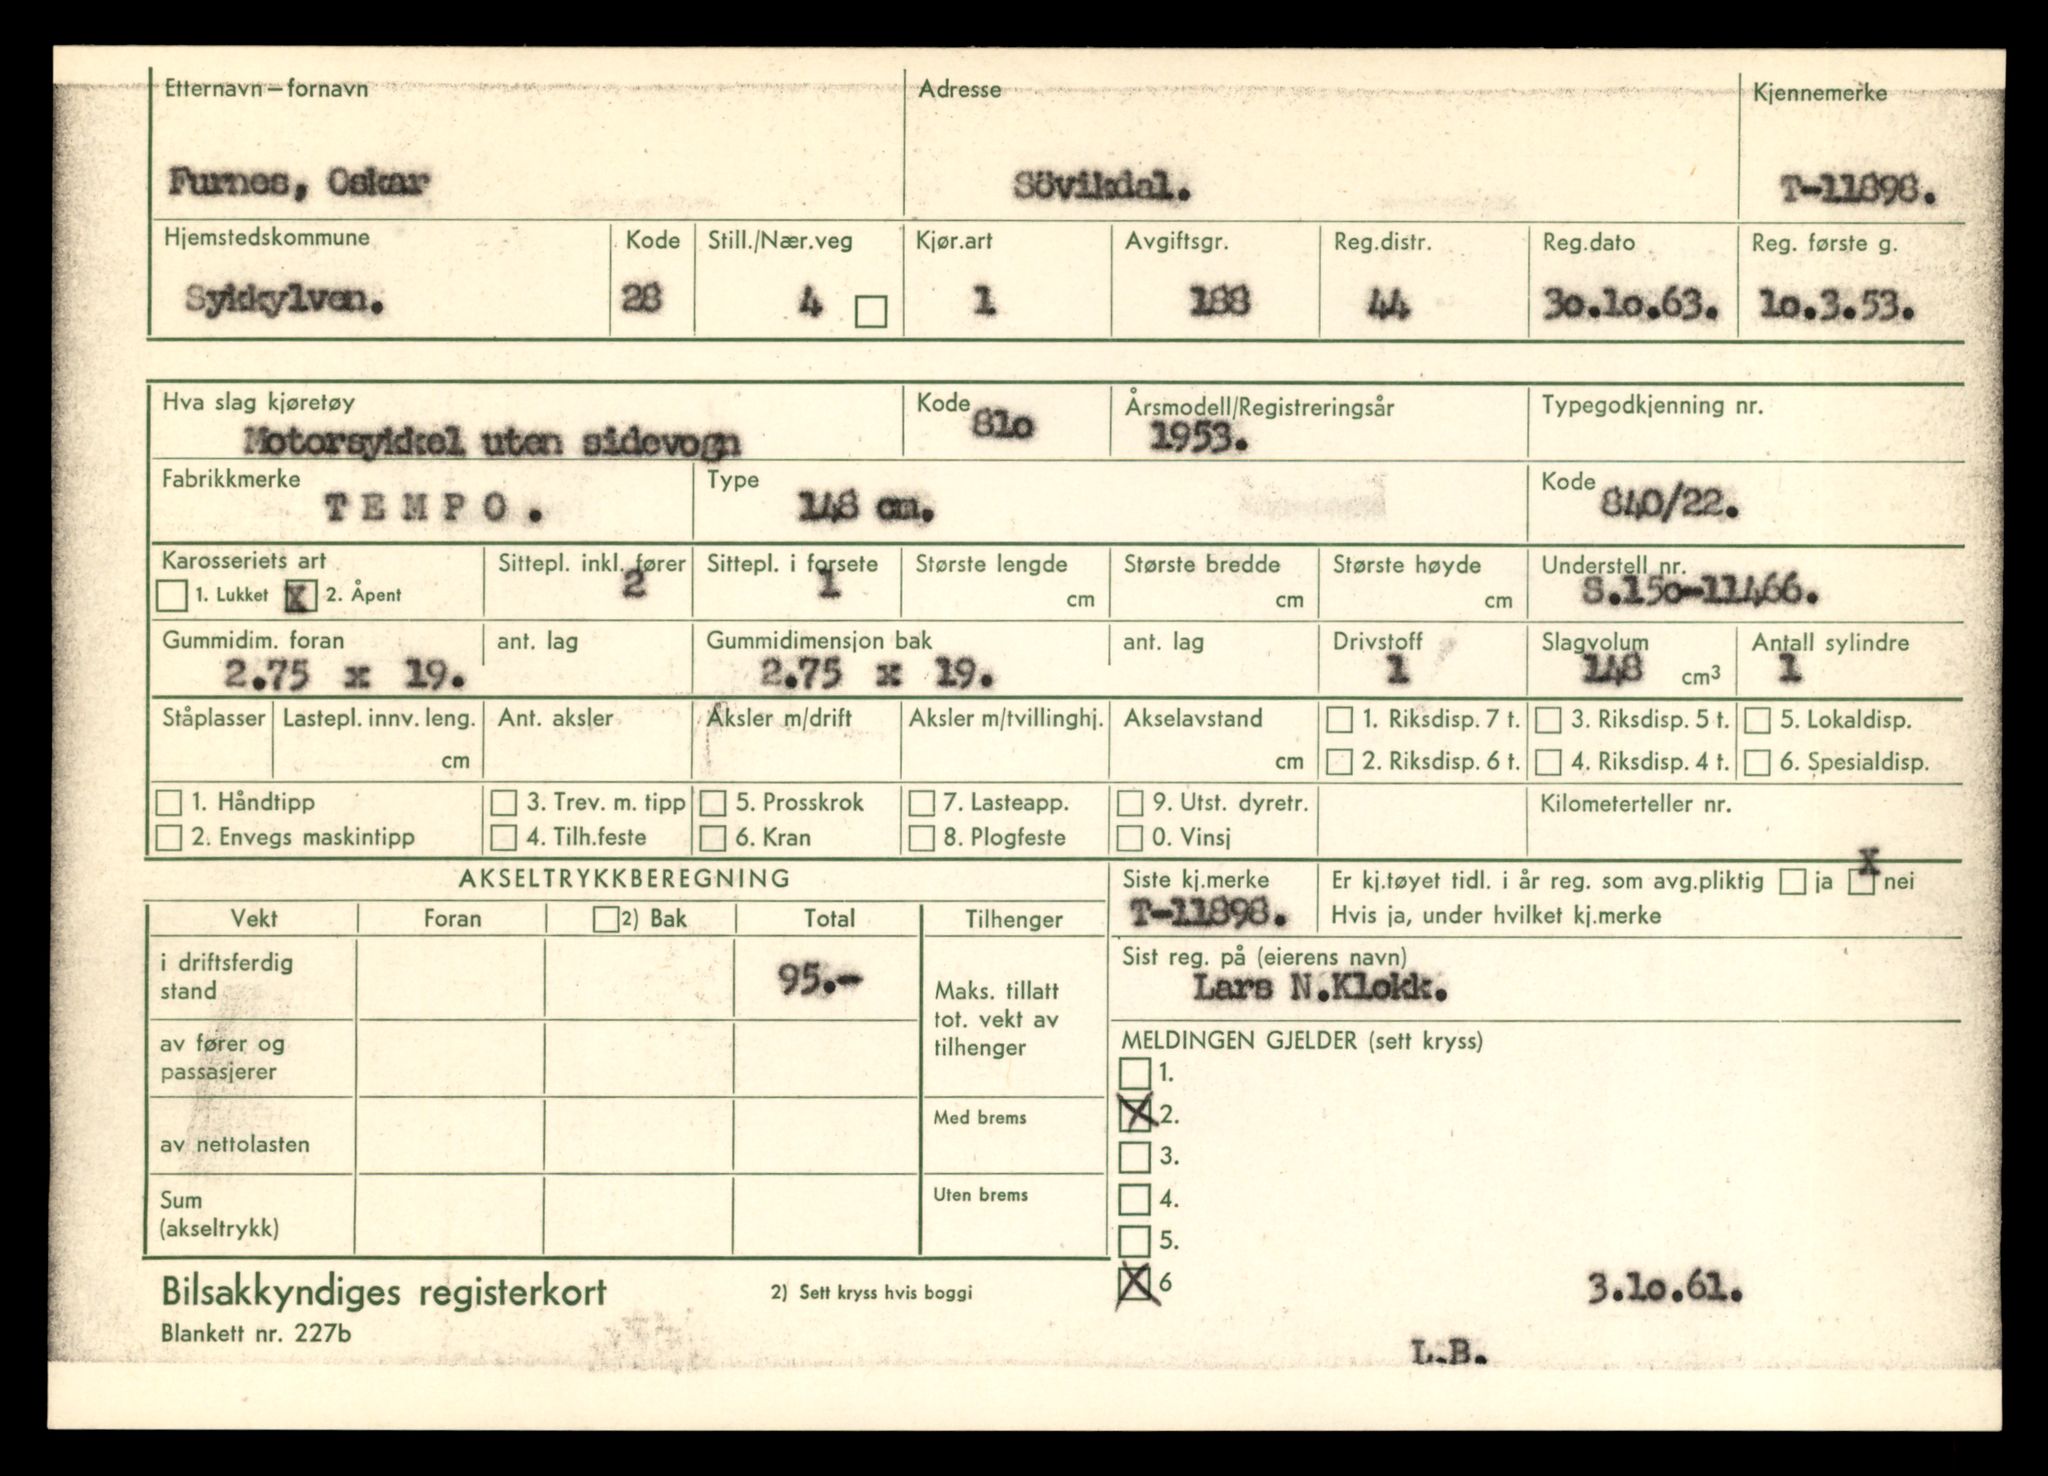 Etternavn – fornavn Adresse Kjennemerke
Furnes, Oskar Sövikdal. T-11898.
Hjemstedskommune Kode Still./Nær.veg Kjør.art Avgiftsgr. Reg.distr. Reg.dato Reg. første g.
Sykkylven. 28 4 1 188 44 30.10.63. 10.3.53.
Hva slag kjøretøy Kode Årsmodell/Registreringsår Typegodkjenning nr.
Motorsykkel uten sidevogn 810 1953.
Fabrikkmerke Type Kode
T E M P O . 148 cm. 840/22.
Karosseriets art Sittepl. inkl. fører Sittepl. i forsete Største lengde Største bredde Største høyde Understell nr.
1. Lukket X 2. Åpent 2 1 cm cm cm S.150-11466.
Gummidim. foran ant. lag Gummidimensjon bak ant. lag Drivstoff Slagvolum Antall sylindre
2.75 x 19. 2.75 x 19. 1 148 cm3 1
Ståplasser Lastepl. innv. leng. Ant. aksler Aksler m/drift Aksler m/tvillinghj. Akselavstand 1. Riksdisp. 7 t. 3. Riksdisp. 5 t. 5. Lokaldisp.
cm cm 2. Riksdisp. 6 t. 4. Riksdisp. 4 t. 6. Spesialdisp.
1. Håndtipp 3. Trev. m. tipp 5. Prosskrok 7. Lasteapp. 9. Utst. dyretr. Kilometerteller nr.
2. Envegs maskintipp 4. Tilh.feste 6. Kran 8. Plogfeste 0. Vinsj
AKSELTRYKKBEREGNING Siste kj.merke Er kj.tøyet tidl. i år reg. som avg.pliktig ja X nei
Vekt Foran 2) Bak Total Tilhenger T-11898. Hvis ja, under hvilket kj.merke
i driftsferdig stand 95.- Sist reg. på (eierens navn)
Lars N.Klokk.
Maks. tillatt
tot. vekt av
tilhenger
av fører og
passasjerer
MELDINGEN GJELDER (sett kryss)
1.
Med brems X 2.
av nettolasten 3.
Sum Uten brems 4.
(akseltrykk) 5.
X 6 3.10.61.
Bilsakkyndiges registerkort 2) Sett kryss hvis boggi
Blankett nr. 227b
L.B.